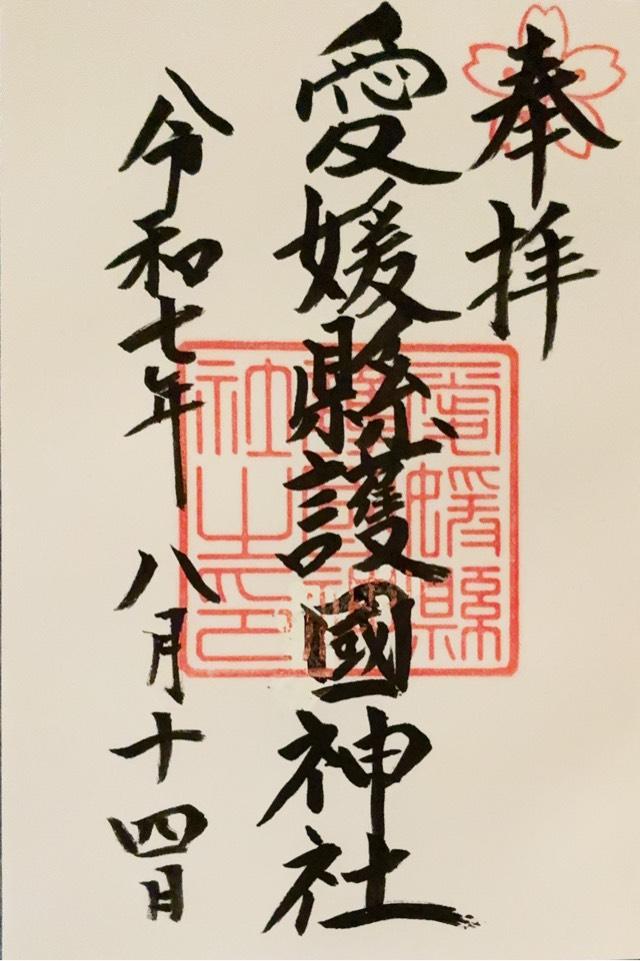 奉拝
愛媛縣護國神社
愛媛縣護國神社之印
令和七年 八月十四日